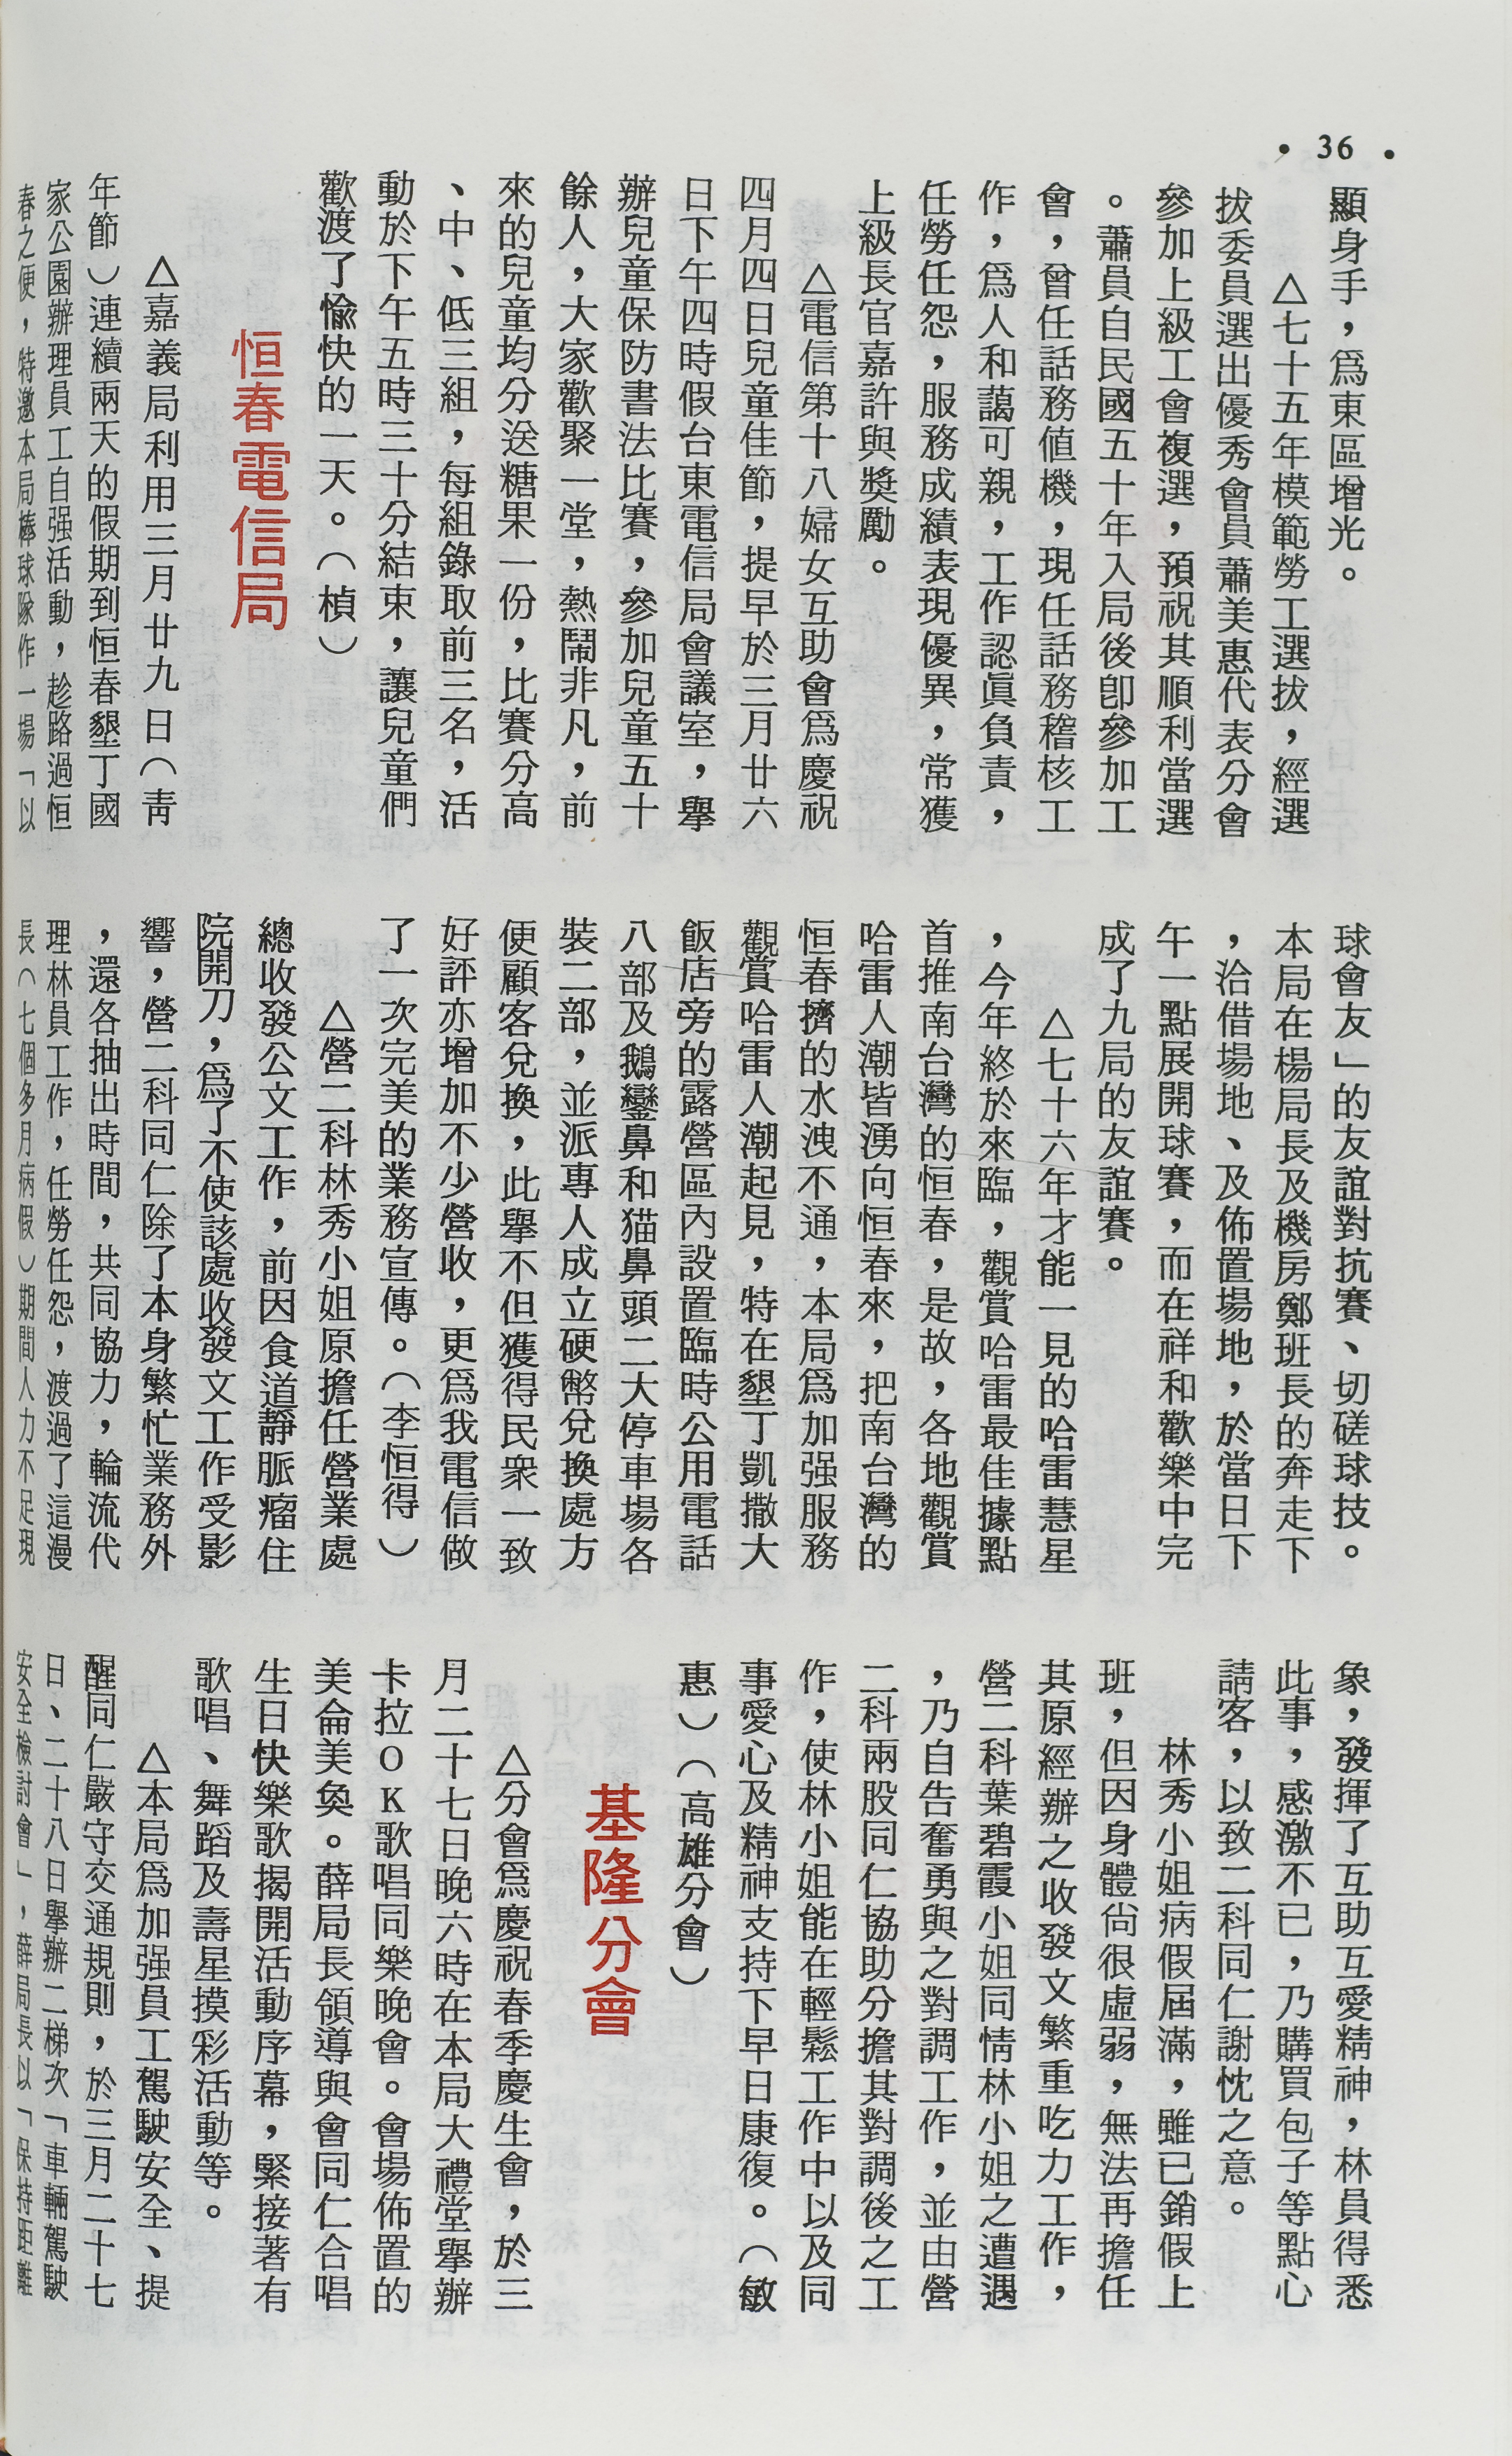 • 36 •
顯身手，爲東區增光。
△七十五年模範勞工選拔，經選
拔委員選出優秀會員蕭美惠代表分會
參加上級工會複選，預祝其順利當選
。蕭員自民國五十年入局後卽參加工
會，曾任話務値機，現任話務稽核工
作，爲人和藹可親，工作認眞負責，
任勞任怨，服務成績表現優異，常獲
上級長官嘉許與獎勵。
△電信第十八婦女互助會爲慶祝
四月四日兒童佳節，提早於三月廿六
日下午四時假台東電信局會議室，舉
辦兒童保防書法比賽，參加兒童五十
餘人，大家歡聚一堂，熱鬧非凡，前
來的兒童均分送糖果一份，比賽分高
、中、低三組，每組錄取前三名，活
動於下午五時三十分結束，讓兒童們
歡渡了愉快的一天。（楨）
恒春電信局
△嘉義局利用三月廿九日（靑
年節）連續兩天的假期到恒春墾丁國
家公園辦理員工自强活動，趁路過恒
春之便，特邀本局棒球隊作一場「以
球會友」的友誼對抗賽、切磋球技。
本局在楊局長及機房鄭班長的奔走下
，洽借場地、及佈置場地，於當日下
午一點展開球賽，而在祥和歡樂中完
成了九局的友誼賽。
△七十六年才能一見的哈雷慧星
，今年終於來臨，觀賞哈雷最佳據點
首推南台灣的恒春，是故，各地觀賞
哈雷人潮皆湧向恒春來，把南台灣的
恒春擠的水洩不通，本局爲加强服務
觀賞哈雷人潮起見，特在墾丁凱撒大
飯店旁的露營區內設置臨時公用電話
八部及鵝鑾鼻和猫鼻頭二大停車場各
裝二部，並派專人成立硬幣兌換處方
便顧客兌換，此舉不但獲得民衆一致
好評亦增加不少營收，更爲我電信做
了一次完美的業務宣傳。（李恒得）
△營二科林秀小姐原擔任營業處
總收發公文工作，前因食道靜脈瘤住
院開刀，爲了不使該處收發文工作受影
響，營二科同仁除了本身繁忙業務外
，還各抽出時間，共同協力，輪流代
理林員工作，任勞任怨，渡過了這漫
長（七個多月病假）期間人力不足現
象，發揮了互助互愛精神，林員得悉
此事，感激不已，乃購買包子等點心
請客，以致二科同仁謝忱之意。
林秀小姐病假屆滿，雖已銷假上
班，但因身體尙很虛弱，無法再擔任
其原經辦之收發文繁重吃力工作，
營二科葉碧霞小姐同情林小姐之遭遇
，乃自告奮勇與之對調工作，並由營
二科兩股同仁協助分擔其對調後之工
作，使林小姐能在輕鬆工作中以及同
事愛心及精神支持下早日康復。（敏
惠）（高雄分會）
基隆分會
△分會爲慶祝春季慶生會，於三
月二十七日晚六時在本局大禮堂舉辦
卡拉OK歌唱同樂晚會。會場佈置的
美侖美奐。薛局長領導與會同仁合唱
生日快樂歌揭開活動序幕，緊接著有
歌唱、舞蹈及壽星摸彩活動等。
△本局爲加强員工駕駛安全、提
醒同仁嚴守交通規則，於三月二十七
日、二十八日舉辦二梯次「車輛駕駛
安全檢討會」，薛局長以「保持距離